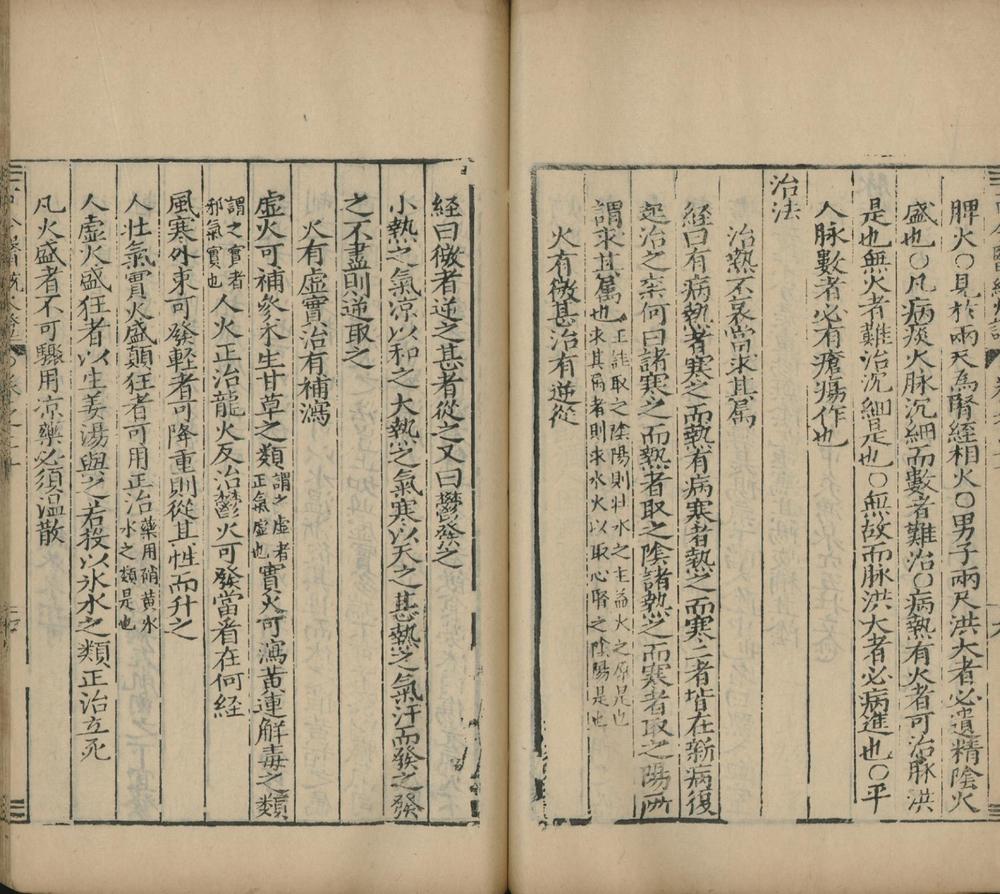 脾火○見於兩尺為腎經相火○男子兩尺洪大者必遺精陰火
盛也○凡病痰火脉沉細而數者難治○病熱有火者可治脉洪
是也無火者難治沉細是也○無故而脉洪大者必病進也○平
人脉數者必有瘡瘍作也
治法
治熱不衰當求其屬
經曰有病熱者寒之而熱有病寒者熱之而寒二者皆在新病復
起治之柰何曰諸寒之而熱者取之陰諸熱之而寒者取之陽所
謂求其屬也王註取之陰陽則壯水之主益火之原是也
求其屬者則求水火以取心腎之陰陽是也
火有微甚治有逆從
経曰微者逆之甚者從之又曰鬱發之
小熱之氣凉以和之大熱之氣寒以天之甚熱之氣汗而發之發
之不盡則逆取之
火有虛實治有補瀉
虛火可補參朮生甘草之類謂之虛者
正氣虛也實火可瀉黄連解毒之類
謂之實者
邪氣實也人火正治龍火反治鬱火可發當看在何經
風寒外束可發輕者可降重則從其性而升之
人壮氣實火盛顛狂者可用正治藥用硝黄氷
水之類是也
人虛火盛狂者以生姜湯與之若投以氷水之類正治立死
凡火盛者不可驟用凉藥必須温散